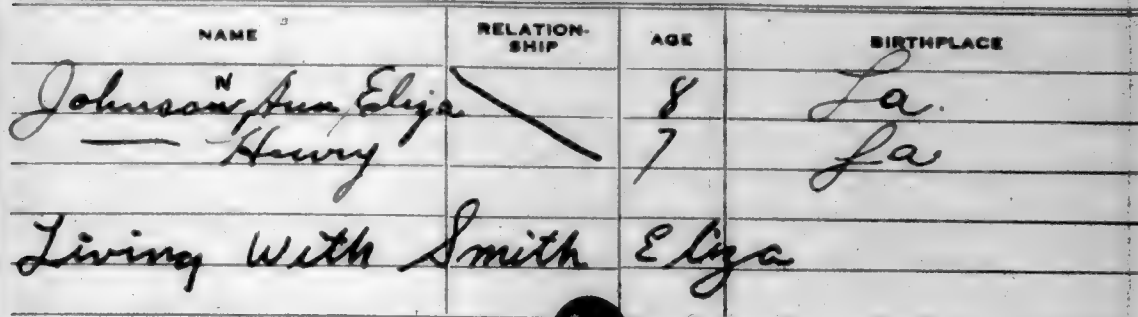 NAME RELATION-SHIP AGE BIRTHPLACE
Johnson, Ann Eliza 8 La.
— Henry 7 La
Living With Smith Eliza